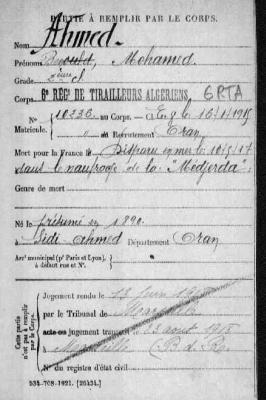 PARTIE À REMPLIR PAR LE CORPS.
Nom Ahmed
Prénoms Mohamed.
Grade 2ème cl.
Corps 6e RÉGt DE TIRAILLEURS ALGÉRIENS, 6RTA
No 10236 au Corps. — Cl.
Matricule. " au Recrutement Oran
Mort pour la France le Disparu en mer le 10/5/17
dans le naufrage de la "Medjerda"
Genre de mort
Né le présumé en 1890.
à Sidi Ahmed Département Oran
Arrt municipal (pr Paris et Lyon),
à défaut rue et No.
Cette partie n'est pas à remplir par le Corps.
Jugement rendu le 13 Juin
par le Tribunal de Marseille
acte ou jugement transcrit le 23 août
à Marseille (B. d. R.)
No du registre d'état civil
534-708-1921. [26434.]